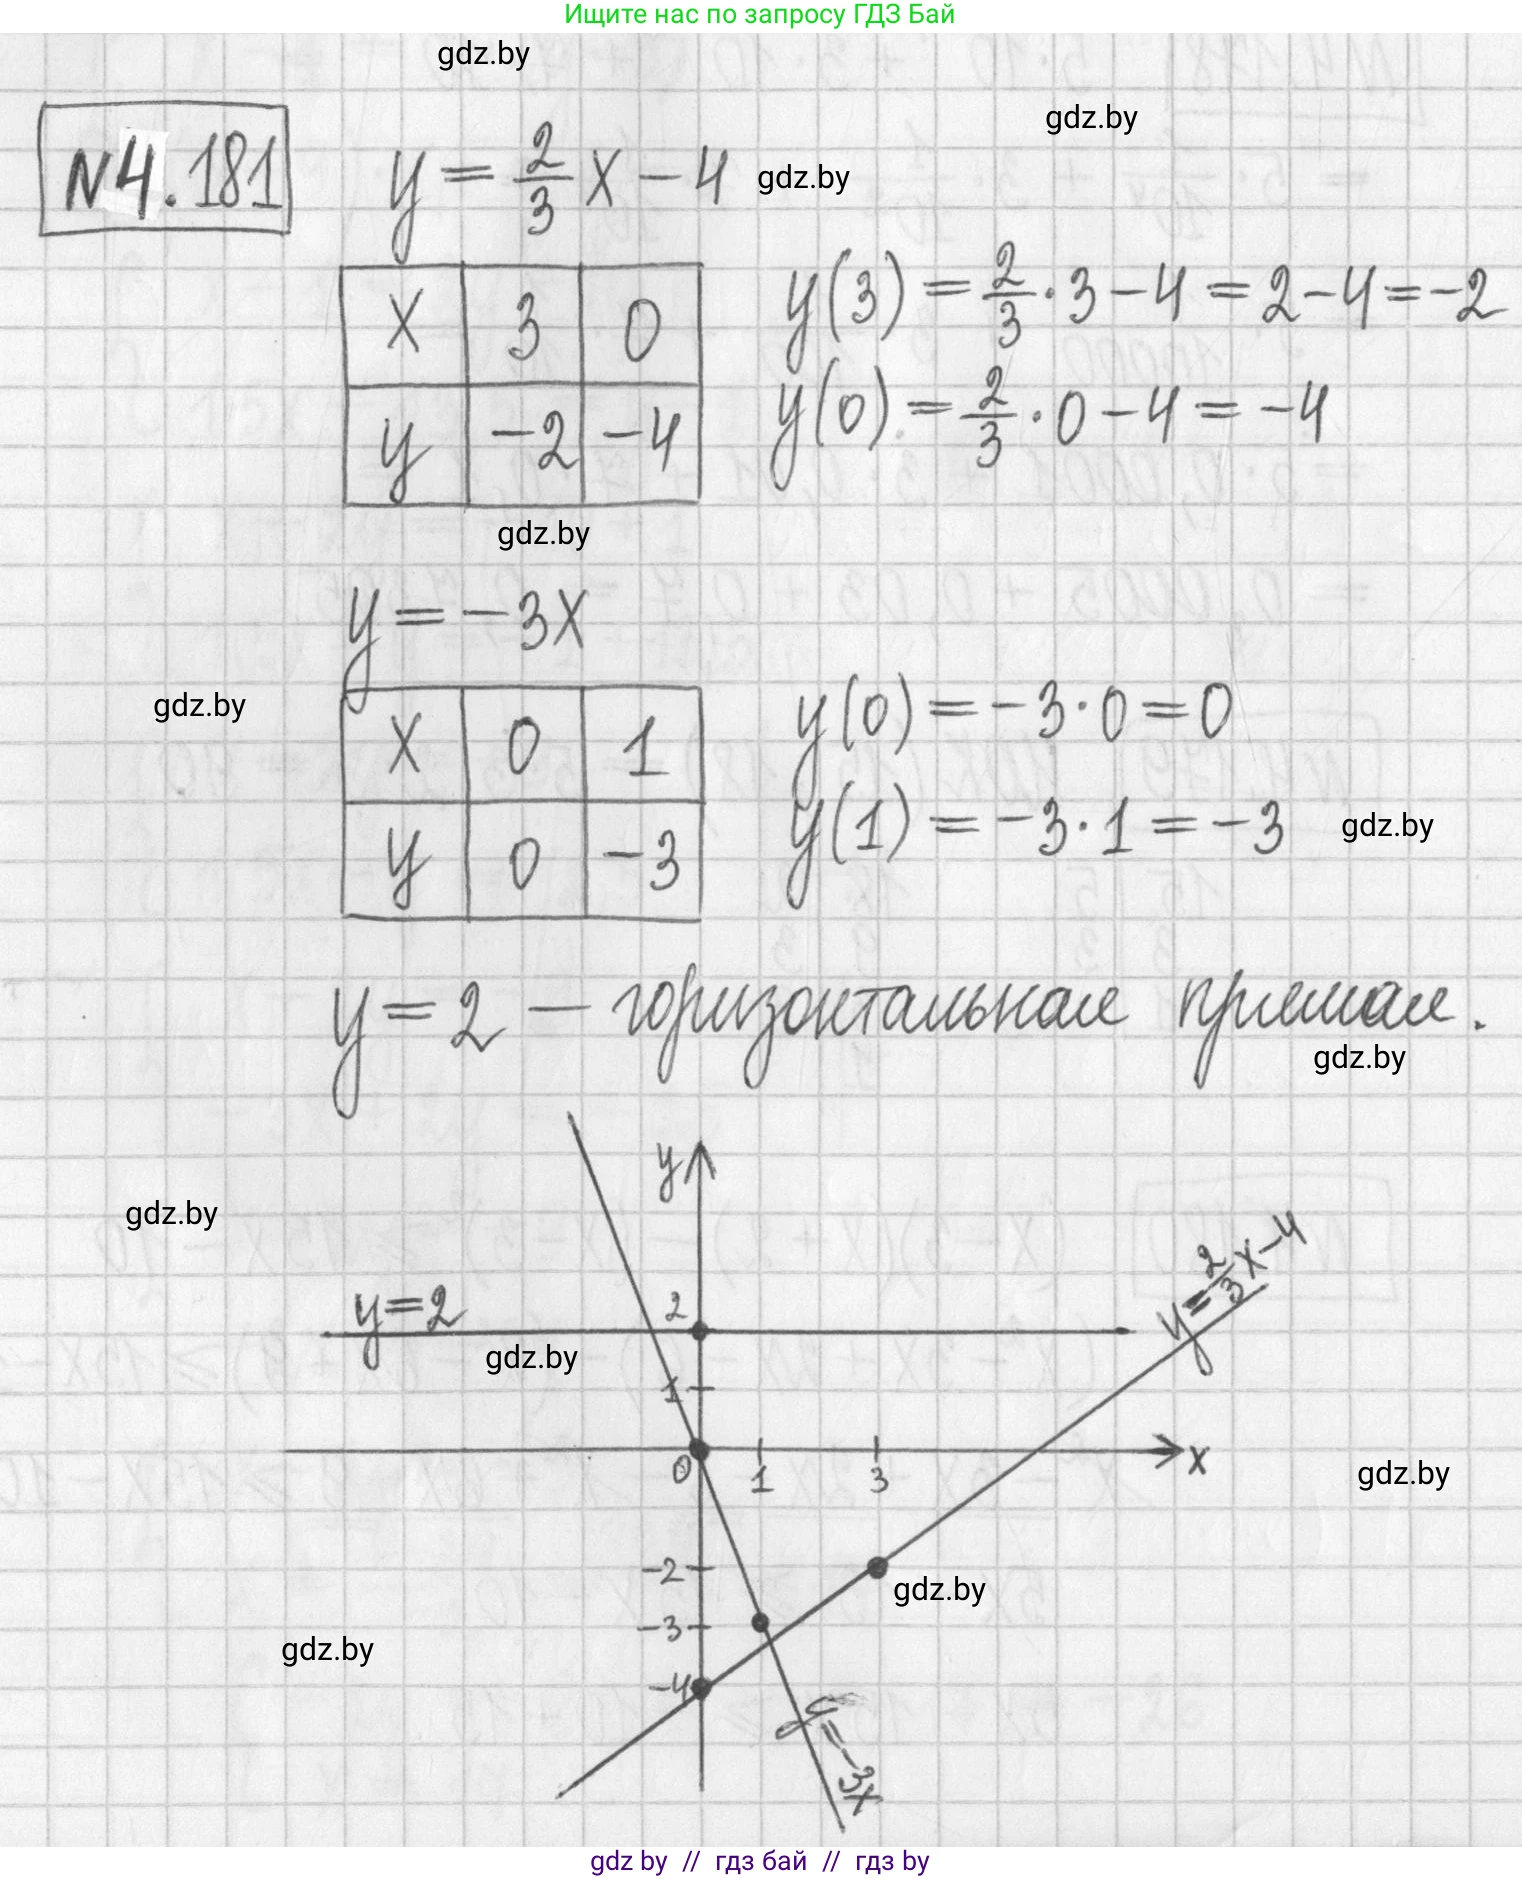 Ищите нас по запросу ГДЗ Бай
gdz.by
gdz.by
N4.181
y = 2/3 x - 4
gdz.by
x 3 0
y -2 -4
y(3) = 2/3 · 3 - 4 = 2 - 4 = -2
y(0) = 2/3 · 0 - 4 = -4
gdz.by
y = -3x
gdz.by
x 0 1
y 0 -3
y(0) = -3 · 0 = 0
y(1) = -3 · 1 = -3
gdz.by
y = 2 — горизонтальная прямая.
gdz.by
y
gdz.by
y = 2/3 x - 4
y = 2
2
gdz.by
1
0
1
3
x
gdz.by
-2
gdz.by
-3
gdz.by
-4
y = -3x
gdz by // гдз бай // гдз by